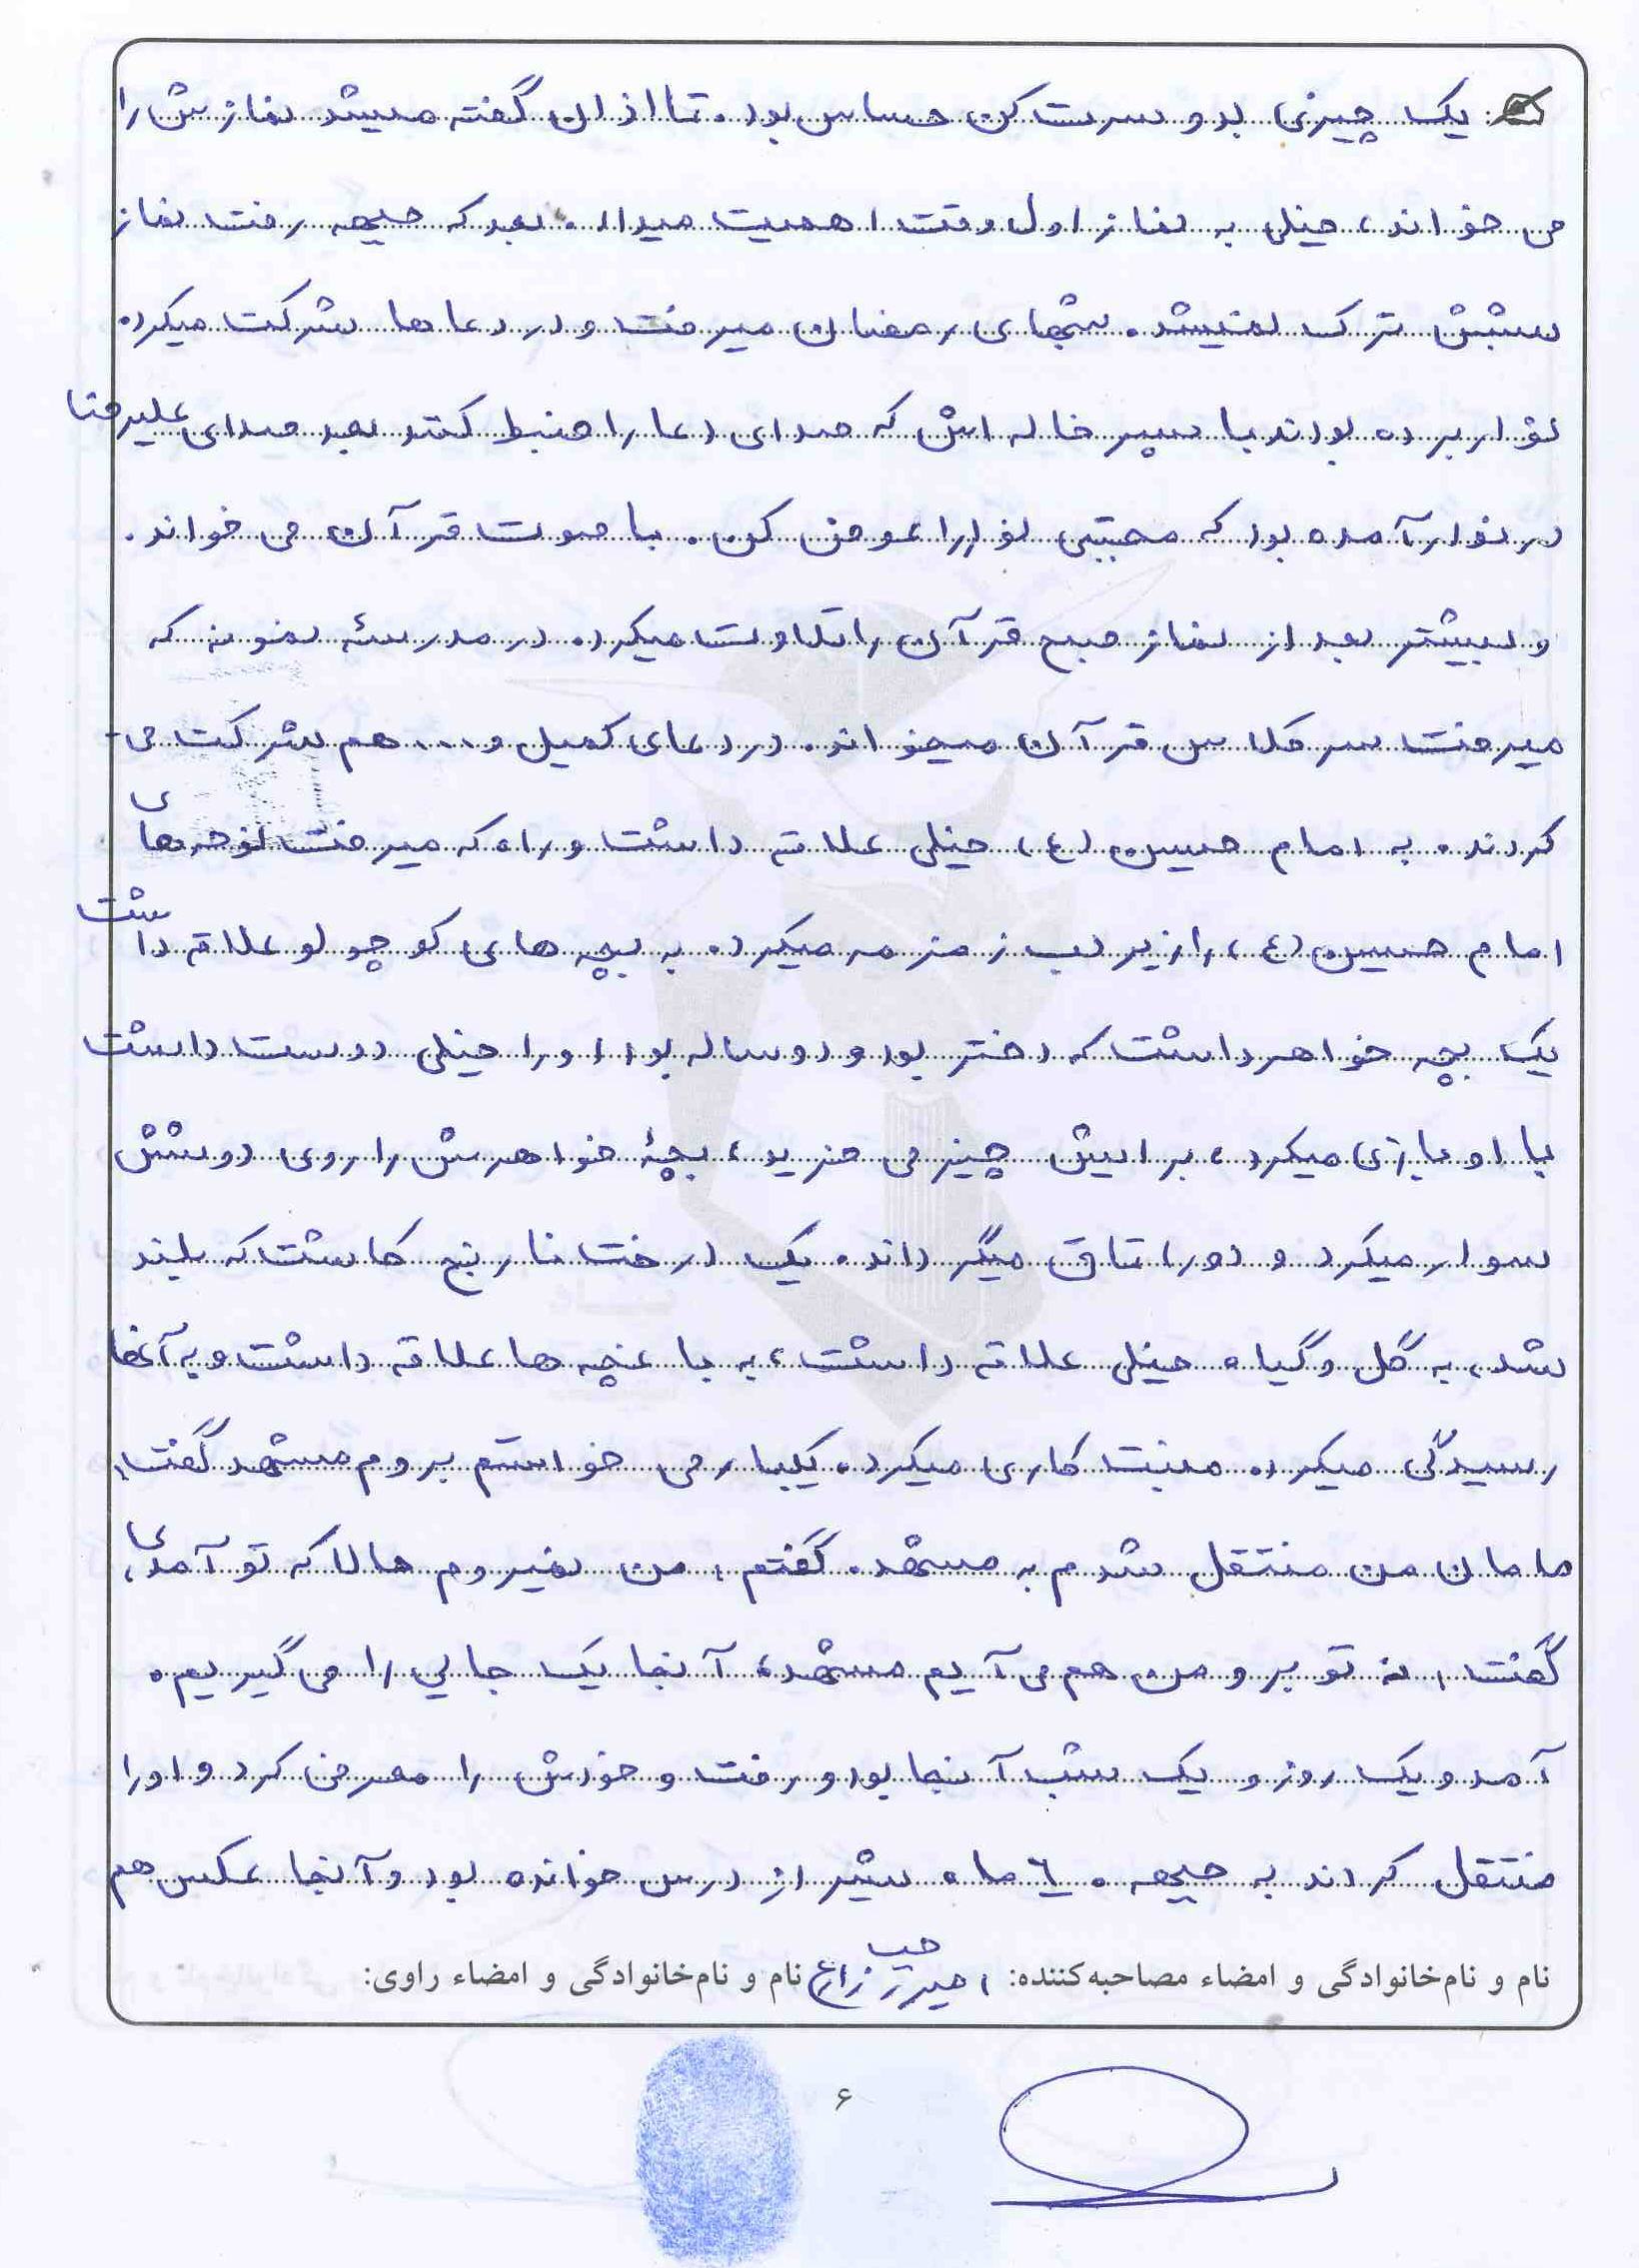 یک چیزی بدوسرت کن حساس بود. تا اذان گفته میشد نمازش را
می خواند، خیلی به نماز اول وقت اهمیت میداد. بعد که جبهه رفت نماز
شبش ترک نمیشد. شبهای رمضان میرفت و در دعاها شرکت میکرد.
نوار برده بودند با پسر خاله اش که صدای دعا را ضبط کنند بعد صدای علیرضا
در نوار آمده بود که مجتبی نوار را عوض کن. با صوت قرآن می خواند.
و بیشتر بعد از نماز صبح قرآن را تلاوت میکرد. در مدرسهٔ نمونه که
میرفت سر کلاس قرآن میخواند. در دعای کمیل و... هم شرکت می-
کردند. به امام حسین (ع) خیلی علاقه داشت و راه که میرفت نوحه های
امام حسین (ع) را زیر لب زمزمه میکرد. به بچه های کوچولو علاقه داشت
یک بچه خواهر داشت که دختر بود و دوساله بود او را خیلی دوست داشت
با او بازی میکرد، برایش چیز می خرید، بچهٔ خواهرش را روی دوشش
سوار میکرد و دور اتاق میگرداند. یک درخت نارنج کاشت که بلند
شد، به گل و گیاه خیلی علاقه داشت، به باغچه ها علاقه داشت و به آنها
رسیدگی میکرد. منبت کاری میکرد. یکبار می خواستم بروم مشهد گفت:
مامان من منتقل شدم به مشهد. گفتم: من نمیروم حالا که تو آمدی،
گفت: نه تو برو من هم می آیم مشهد، آنجا یک جایی را می گیریم.
آمد و یک روز و یک شب آنجا بود و رفت و خودش را معرفی کرد و او را
منتقل کردند به جبهه. ٦ ماه بیشتر درس خوانده بود و آنجا عکس هم
نام و نام‌خانوادگی و امضاء مصاحبه‌کننده: نام و نام‌خانوادگی و امضاء راوی:
۶